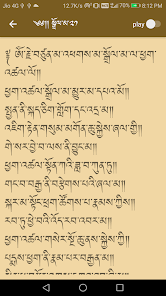 Jio 4G 12.7K/s 8:12 PM
༄༅།། སྒྲོལ་མ་༢༡ play
༈ ཨོཾ་རྗེ་བཙུན་མ་འཕགས་མ་སྒྲོལ་མ་ལ་ཕྱག་
འཚལ་ལོ།།
ཕྱག་འཚལ་སྒྲོལ་མ་མྱུར་མ་དཔའ་མོ།།
སྤྱན་ནི་སྐད་ཅིག་གློག་དང་འདྲ་མ།།
འཇིག་རྟེན་གསུམ་མགོན་ཆུ་སྐྱེས་ཞལ་གྱི།།
གེ་སར་བྱེ་བ་ལས་ནི་བྱུང་མ།།
ཕྱག་འཚལ་སྟོན་ཀའི་ཟླ་བ་ཀུན་ཏུ།།
གང་བ་བརྒྱ་ནི་བརྩེགས་པའི་ཞལ་མ།།
སྐར་མ་སྟོང་ཕྲག་ཚོགས་པ་རྣམས་ཀྱིས།།
རབ་ཏུ་ཕྱེ་བའི་འོད་རབ་འབར་མ།།
ཕྱག་འཚལ་གསེར་སྔོ་ཆུ་ནས་སྐྱེས་ཀྱི།།
པདྨས་ཕྱག་ནི་རྣམ་པར་བརྒྱན་མ།།